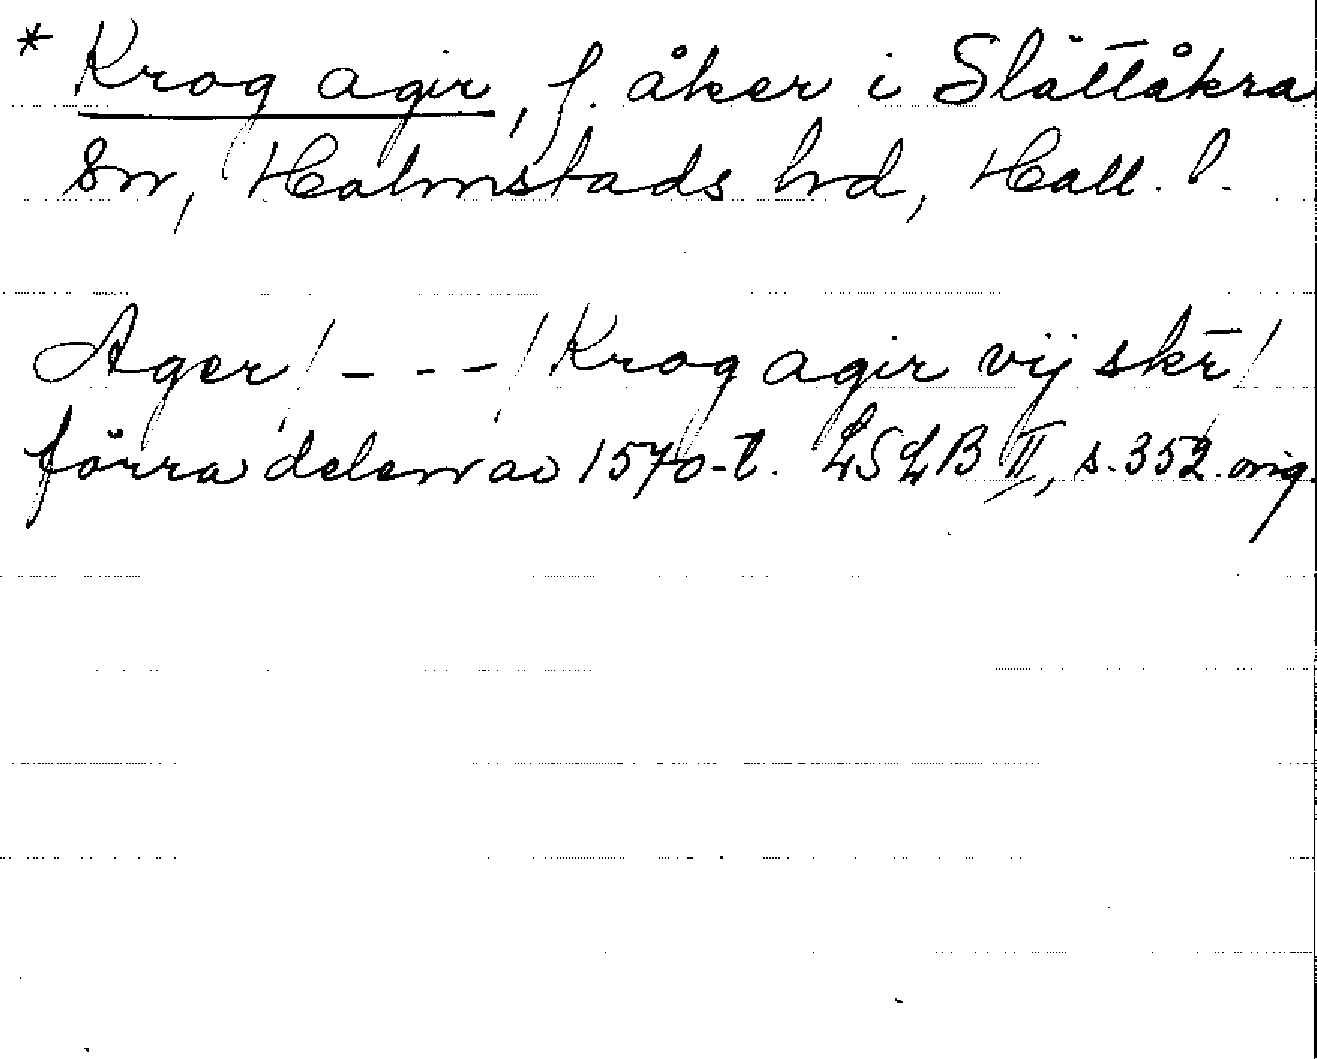 * Krog agir, f. åker i Slättåkra
sn, Halmstads hd, Hall. l.
Ager / - - - / Krog agir vij skē /
förra delen av 1570-t. LSLB II, s. 352. orig.